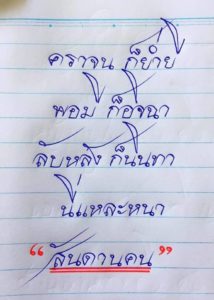 คราจน ก็ย่ำยี
พอมี ก็อิจฉา
ลับหลัง ก็นินทา
นี่แหละหนา
“สันดานคน”